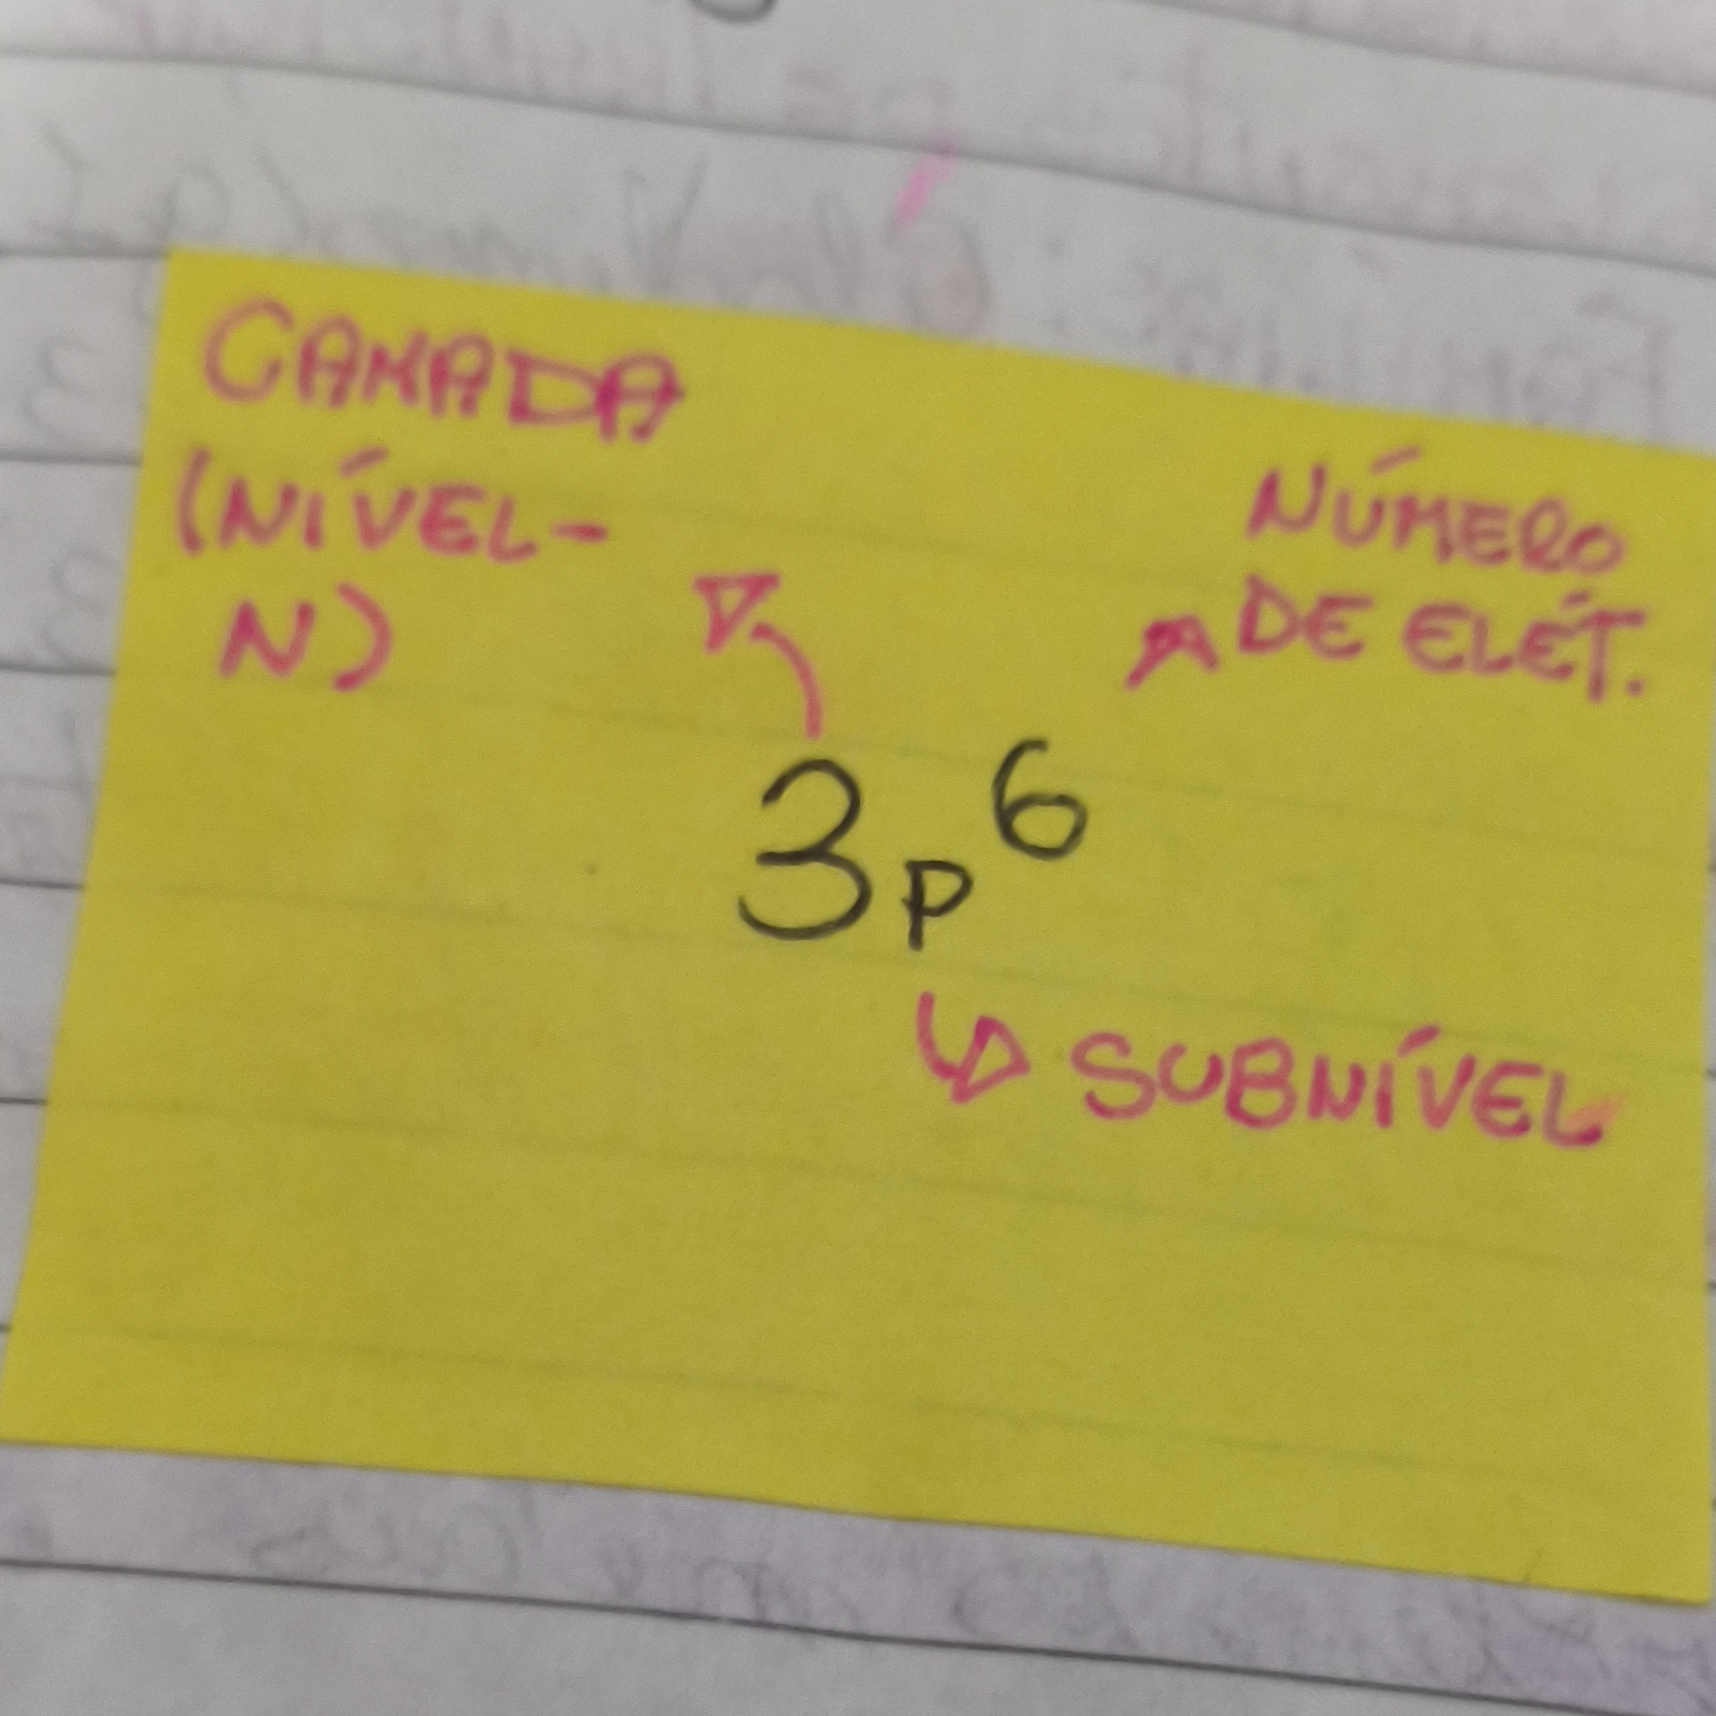 CAMADA
(NÍVEL-
N)
NÚMERO
DE ELÉT.
3p⁶
SUBNÍVEL